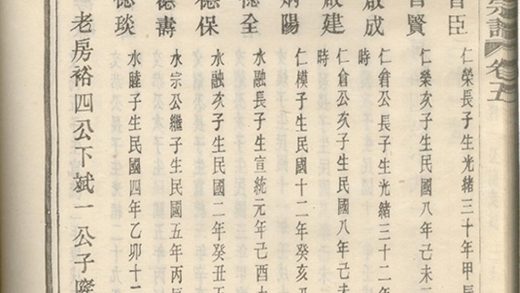 宗譜 卷五
臣 仁榮長子生光緒三十年甲辰
賢 仁榮次子生民國八年己未三
啟成 仁倉公長子生光緒三十二年
時
啟建 仁倉公次子生民國八年己未
時
炳陽 仁模子生民國十二年癸亥
德全 水融長子生宣統元年己酉十
德保 水融次子生民國二年癸丑
德壽 水宗公繼子生民國五年丙辰
德琰 水睦子生民國四年乙卯十二
老房裕四公下斌一公子